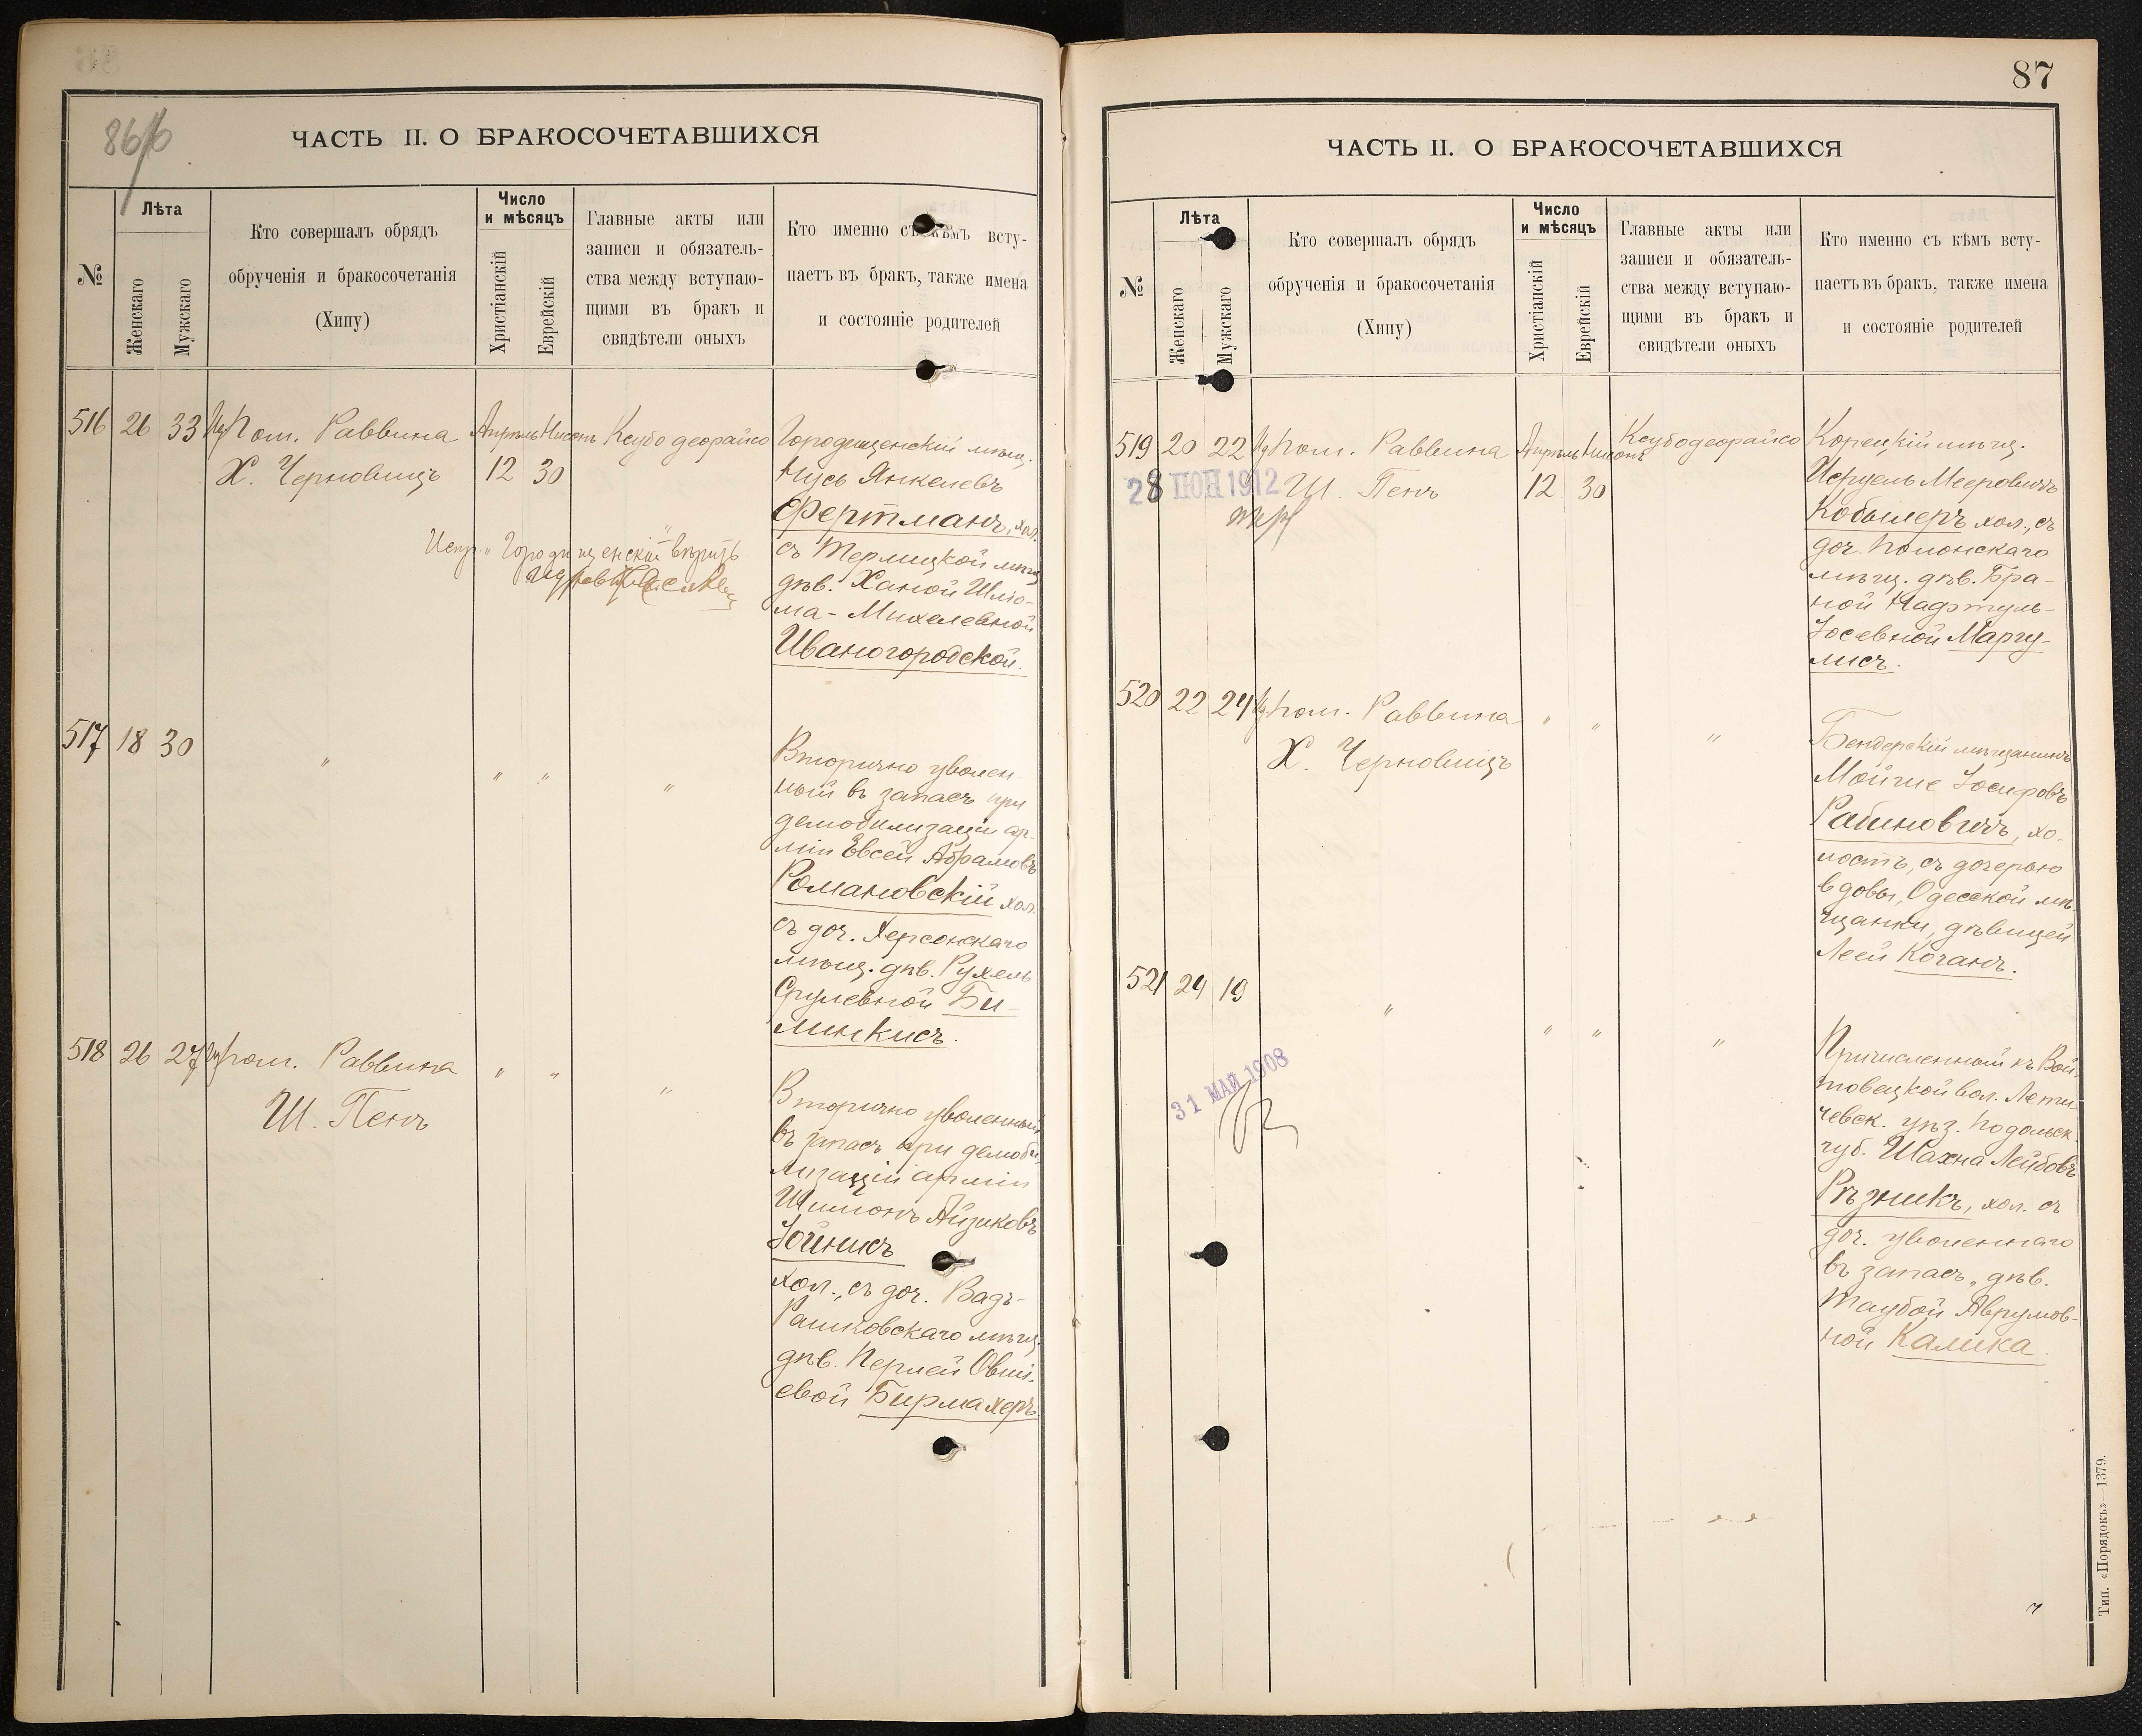 86/б
ЧАСТЬ II. О БРАКОСОЧЕТАВШИХСЯ
№
Лѣта
Женскаго
Мужскаго
Кто совершалъ обрядъ
обрученія и бракосочетанія
(Хипу)
Число
и мѣсяцъ
Христіанскій
Еврейскій
Главные акты или
записи и обязатель-
ства между вступаю-
щими въ бракъ и
свидѣтели оныхъ
Кто именно съ кѣмъ всту-
паетъ въ бракъ, также имена
и состояніе родителей
516 26 33 Пом. Раввина
Х. Черновицъ
Апрѣль Нисонъ
12 30
Ксубо деорайсо
Городищенскій мѣщ.
Нусь Янкелевъ
Фертманъ, хол.
съ Терлицкой мѣщ
дѣв. Ханой Шлё-
ма-Михелевной
Ивангородской.
Испр. "Городищенскій" вѣрить
517 18 30 " " " "
Вторично уволен-
ный въ запасъ при
демобилизаціи ар-
міи Евсей Абрамовъ
Романовскій хол.
съ доч. Херсонскаго
мѣщ. дѣв. Рухель
Срулевной Би-
линкисъ.
518 26 27 пом. Раввина
Ш. Пенъ
" " "
Вторично уволенный
въ запасъ при демоби-
лизаціи арміи
Шимонъ Айзиковъ
Іойнисъ
хол., съ доч. Вадъ-
Рашковскаго мѣщ.
дѣв. Перлей Овши-
евой Бирмахеръ.
87
ЧАСТЬ II. О БРАКОСОЧЕТАВШИХСЯ
№
Лѣта
Женскаго
Мужскаго
Кто совершалъ обрядъ
обрученія и бракосочетанія
(Хипу)
Число
и мѣсяцъ
Христіанскій
Еврейскій
Главные акты или
записи и обязатель-
ства между вступаю-
щими въ бракъ и
свидѣтели оныхъ
Кто именно съ кѣмъ всту-
паетъ въ бракъ, также имена
и состояніе родителей
519 20 22 пом. Раввина
Ш. Пенъ
28 ІЮН 1912
Апрѣль Нисонъ
12 30
Ксубо деорайсо
Корецкій мѣщ.
Исруель Мееровичъ
Кобылеръ хол., съ
доч. Полонскаго
мѣщ. дѣв. Бра-
ной Нафтуль-
Іосевной Маргу-
лисъ.
520 22 24 пом. Раввина
Х. Черновицъ
" " "
Бендерскій мѣщанинъ
Мойше Іосифовъ
Рабиновичъ, хо-
лостъ, съ дочерью
вдовы, Одесской мѣ-
щанки, дѣвицей
Леей Коганъ.
521 24 19 " " " "
31 МАЙ 1908
Причисленный къ Вой-
товецкой вол. Лети-
чевск. уѣз. Подольск.
губ. Шахна Лейбовъ
Рѣзникъ, хол. съ
доч. уволеннаго
въ запасъ, дѣв.
Таубой Аврумов-
ной Калика.
Тип. «Порядокъ»—1379.